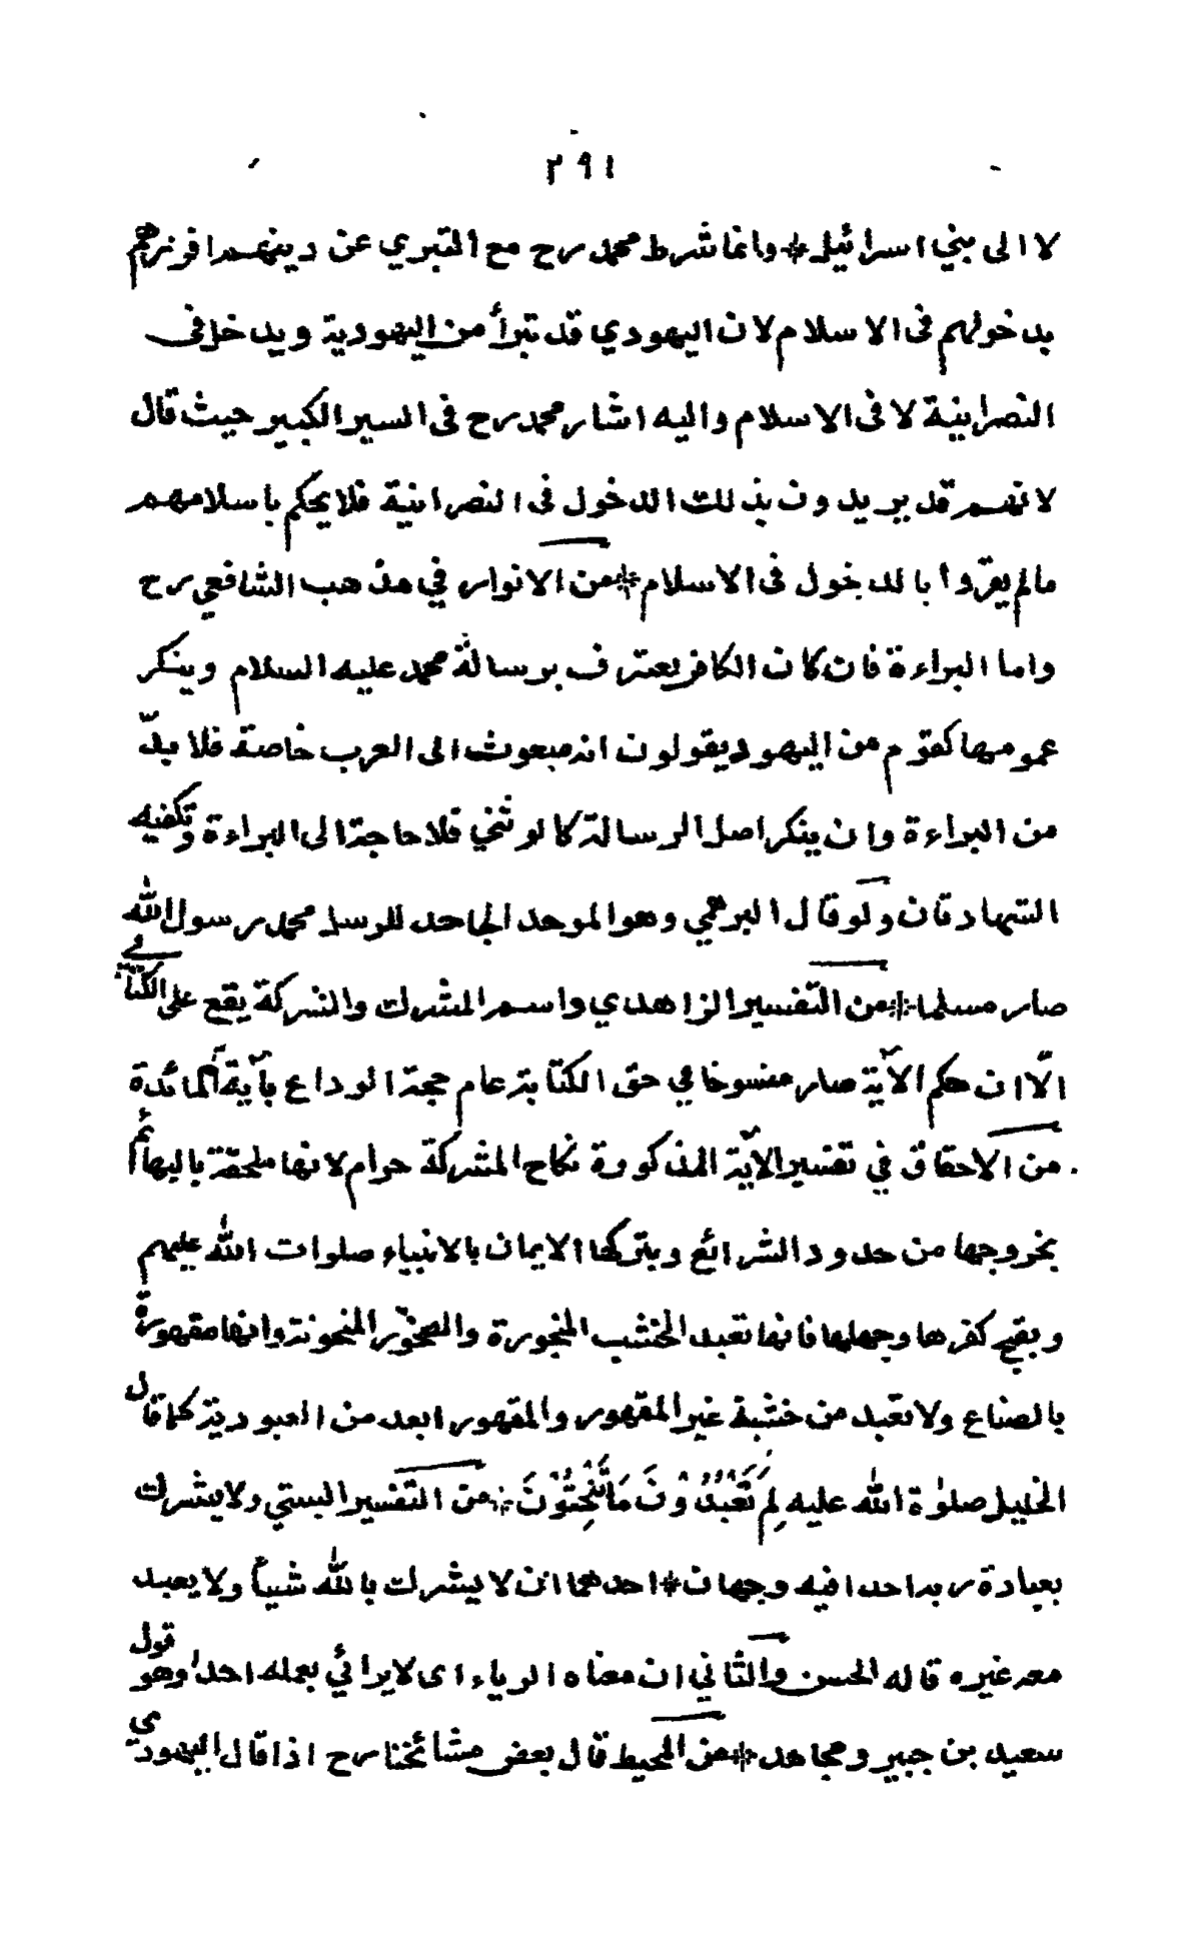 ٢٩١
لا الى بني اسرائيل * وانما شرط محمد رح مع التبري عن دينهم اقرارهم
بدخولهم فى الاسلام لان اليهودي قد تبرأ من اليهودية ويدخل فى
النصرانية لا فى الاسلام واليه اشار محمد رح فى السير الكبير حيث قال
لانهم قد يريدون بذلك الدخول فى النصرانية فلا يحكم باسلامهم
مالم يقرّوا بالدخول فى الاسلام * من الانوار في مذهب الشافعي رح
واما البراءة فان كان الكافر يعترف برسالة محمد عليه السلام وينكر
عمومها كقوم من اليهود يقولون انه مبعوث الى العرب خاصة فلا بدّ
من البراءة وان ينكر اصل الرسالة كالوثني فلا حاجة الى البراءة وتكفيه
الشهادتان ولو قال البرهمي وهو الموحد الجاحد للرسل محمد رسول الله
صار مسلما * من التفسير الزاهدي واسم المشرك والمشركة يقع على الكتابية
الّا ان حكم الآية صار منسوخا في حق الكتابية عام حجة الوداع بآية المائدة
من الاحقاق في تفسير الآية المذكورة نكاح المشركة حرام لانها ملحقة بالبهائم
بخروجها من حدود الشرائع وبتركها الايمان بالانبياء صلوات الله عليهم
وبقبح كفرها وجهلها فانها تعبد الخشب المنجورة والصخور المنحوتة وانها مقهورة
بالصناع ولا تعبد من خشبة غير المقهور والمقهور ابعد من العبودية كما قال
الخليل صلوٰة الله عليه لِمَ تَعْبُدُونَ مَا تَنْحِتُوْنَ * من التفسير البستي ولا يشرك
بعبادة ربه احدا فيه وجهان * احدهما ان لا يشرك بالله شيأ ولا يعبد
معه غيره قاله الحسن والثاني ان معناه الرياء اى لا يرائي بعمله احدا وهو قول
سعيد بن جبير ومجاهد * من المحيط قال بعض مشائخنا رح اذا قال اليهودي